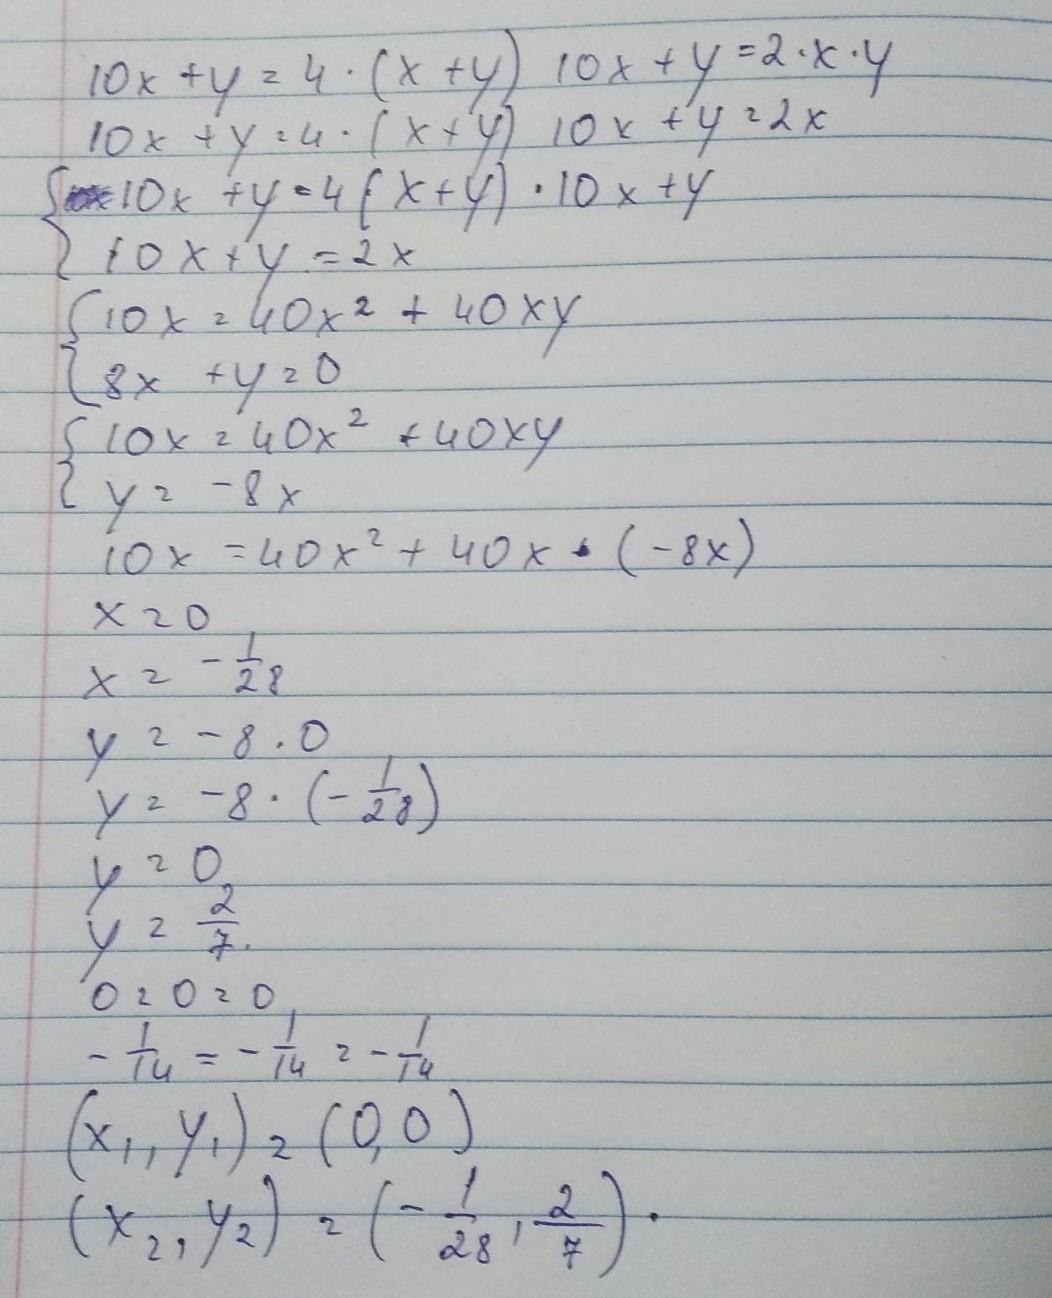 10x + y = 4 · (x + y) 10x + y = 2 · x · y
10x + y = 4 · (x + y) 10x + y = 2x
10x + y = 4 (x + y) · 10x + y
10x + y = 2x
10x = 40x² + 40xy
8x + y = 0
10x = 40x² + 40xy
y = -8x
10x = 40x² + 40x · (-8x)
x = 0
x = -1/28
y = -8 · 0
y = -8 · (-1/28)
y = 0
y = 2/7.
0 = 0 = 0
-1/14 = -1/14 = -1/14
(x₁, y₁) = (0,0)
(x₂, y₂) = (-1/28, 2/7).